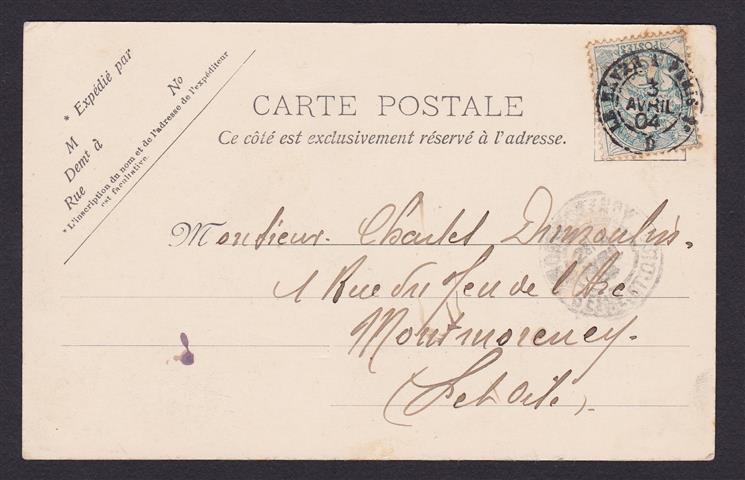 * Expédié par
M
Demt à
Rue No
* L'inscription du nom et de l'adresse de l'expéditeur
est facultative.
CARTE POSTALE
Ce côté est exclusivement réservé à l'adresse.
POSTES
LE HAVRE A PARIS
3
AVRIL
04
D
Monsieur Charles Dumoulin.
1 Rue du Jeu de l'Arc
Montmorency.
(Set Oise).